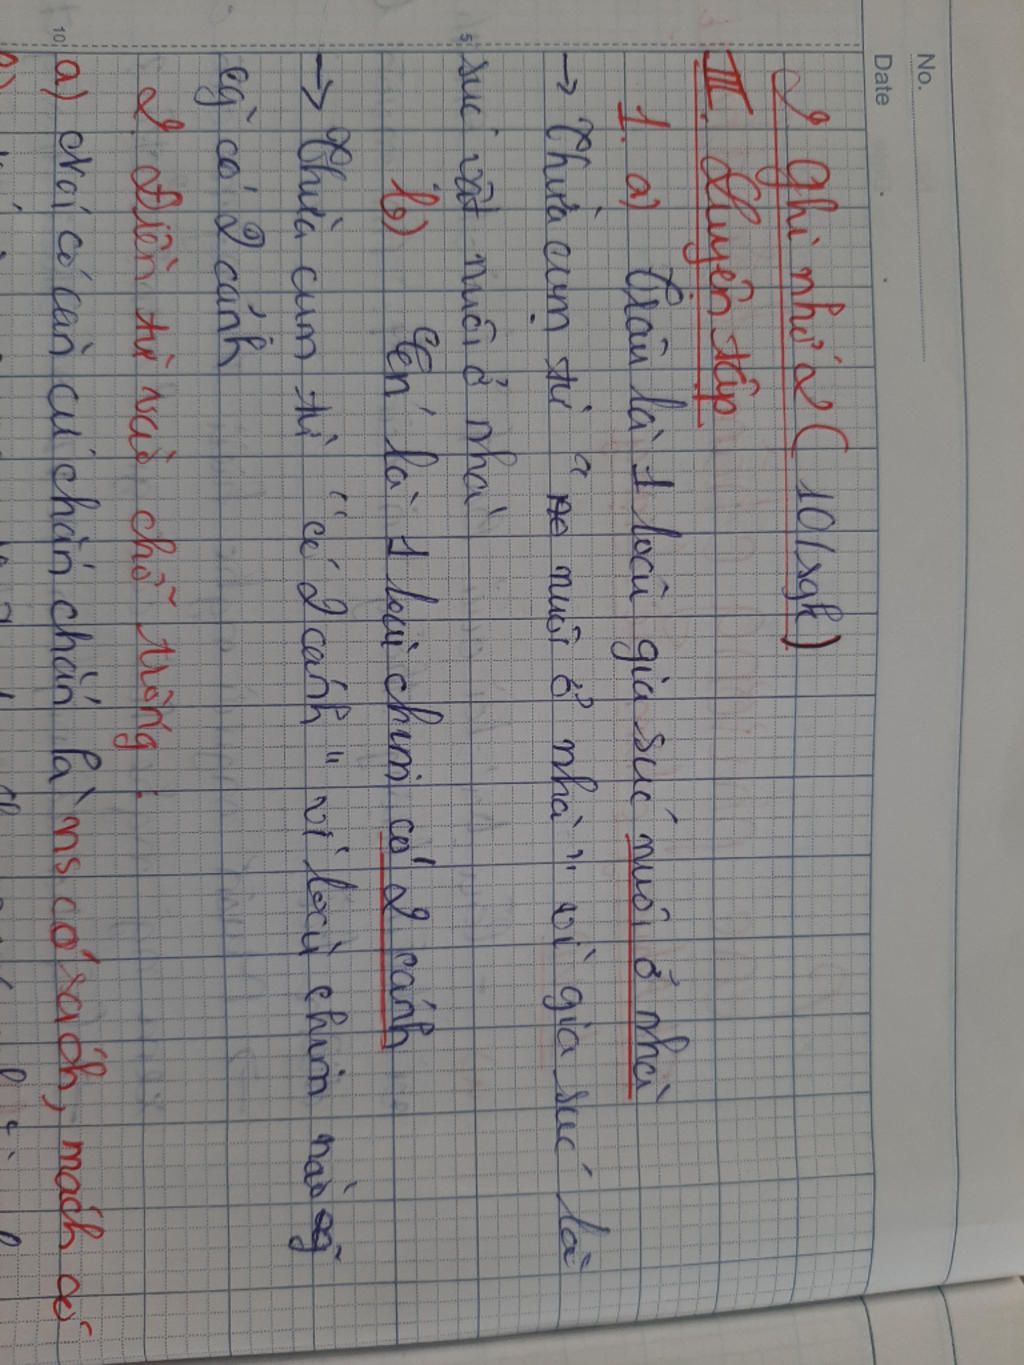 No.
Date
2 ghi nhớ 2 (10/sgk)
III. Luyện tập
1. a) Trâu là 1 loài gia súc nuôi ở nhà
→ Thừa cụm từ " nuôi ở nhà" vì gia súc là
5 súc vật nuôi ở nhà
b) Én là 1 loài chim có 2 cánh
→ Thừa cụm từ "có 2 cánh" vì loài chim nào
cg̃ có 2 cánh
2. Điền từ vào chỗ trống:
10 a) Nói có căn cứ chắc chắn là ns có sách, mách có